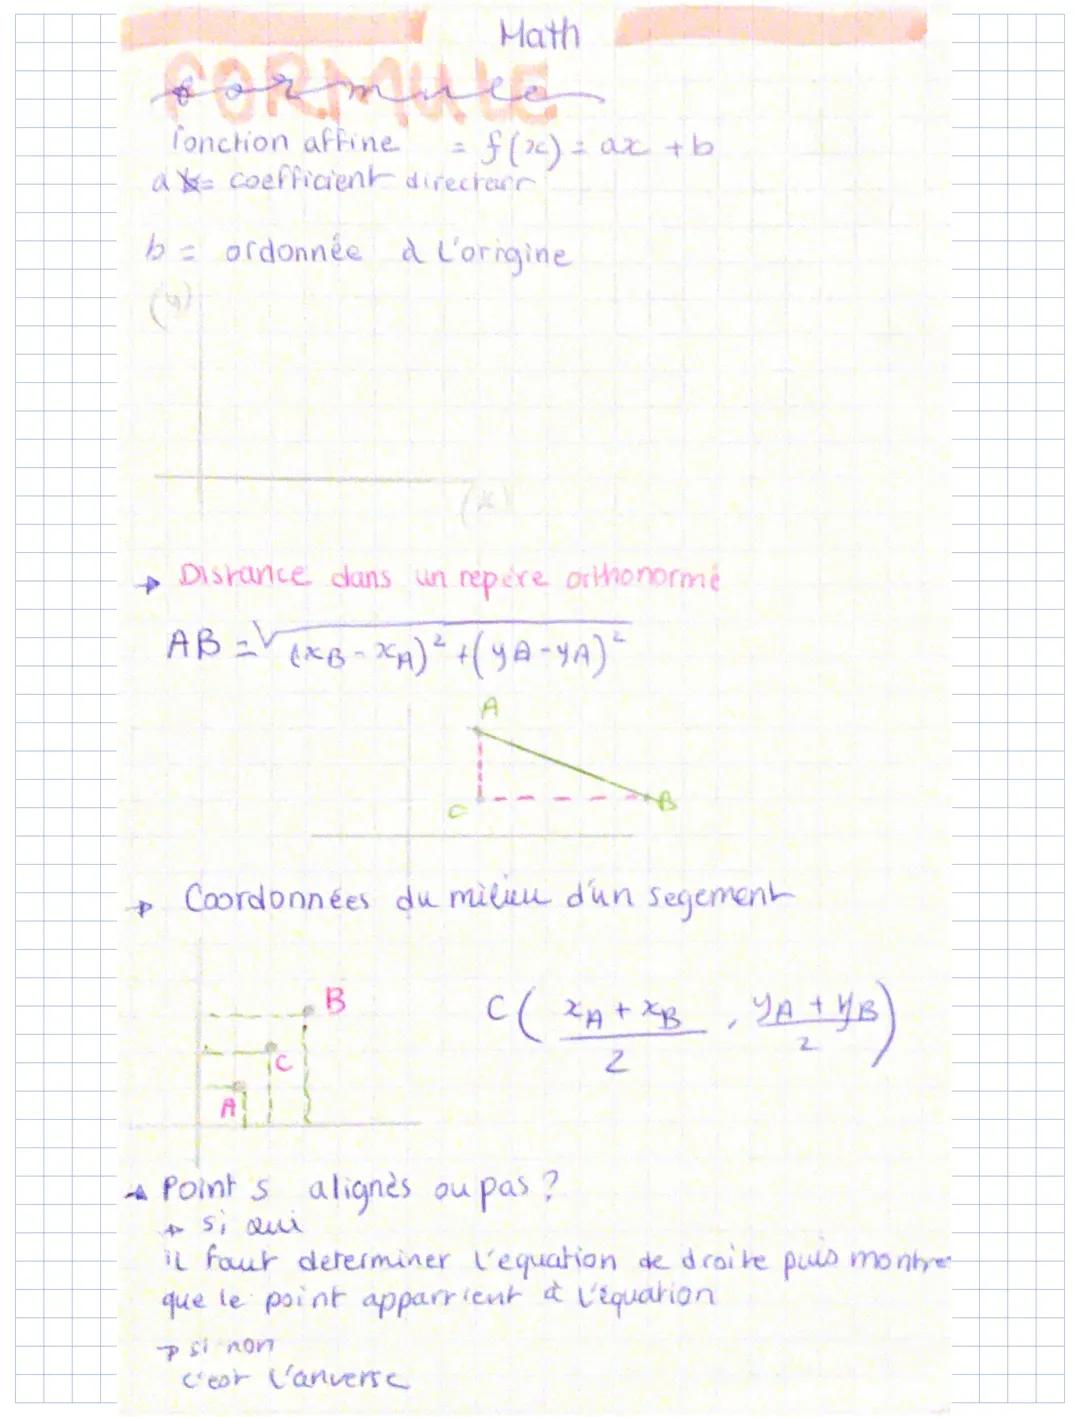 Math
FORMULE
formule
fonction affine = f(x) = ax + b
a = coefficient directeur
b = ordonnée à l'origine
(y)
(x)
→ Distance dans un repère orthonormé
AB = √(xB - xA)² + (yB - yA)²
A
C
B
→ Coordonnées du milieu d'un segement
B
C
A
C( xA + xB / 2 , yA + yB / 2 )
→ Point s alignès ou pas ?
→ si oui
il faut determiner l'equation de droite puis montrer
que le point apparrient à l'équation
→ si non
c'est l'anverse